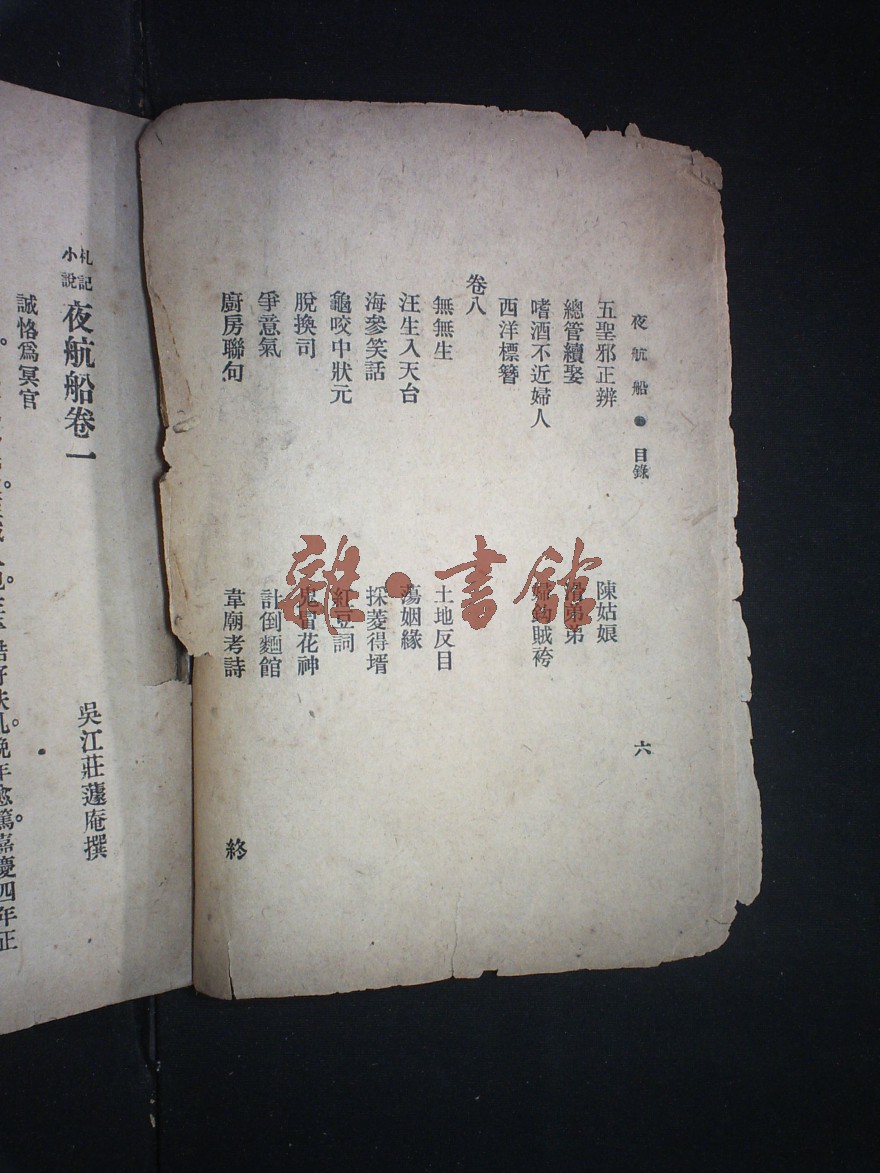 夜航船●目錄 六
五聖邪正辨 陳姑娘
總管續娶 弟弟
嗜酒不近婦人 賊袴
西洋標簪
卷八
無無生 土地反目
汪生入天台 蕩姻緣
海參笑話 採菱得壻
龜咬中狀元 紅豆詞
脫換司 花神
爭意氣 計倒麵館
廚房聯句 韋廟考詩 終
札記小說 夜航船卷一
吳江莊蘧庵撰
誠恪爲冥官
扶乩晚年愈篤嘉慶四年正
雜·書館